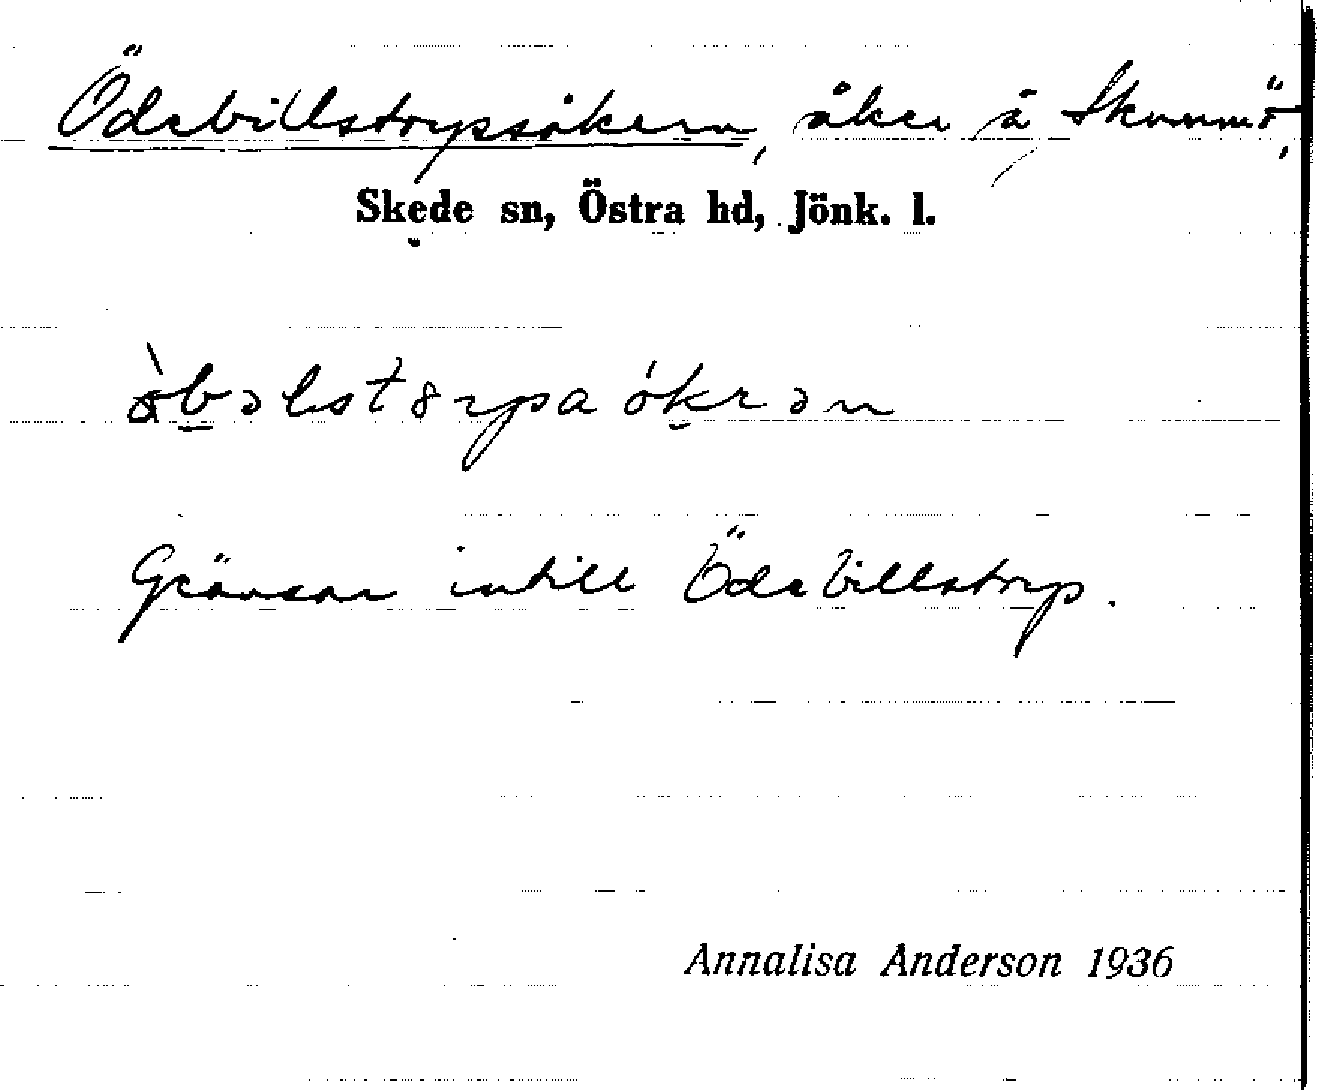 Ödebillstorpsåkern, åker å Skummö,
Skede sn, Östra hd, Jönk. l.
Gränsar intill Ödebillstorp.
Annalisa Anderson 1936